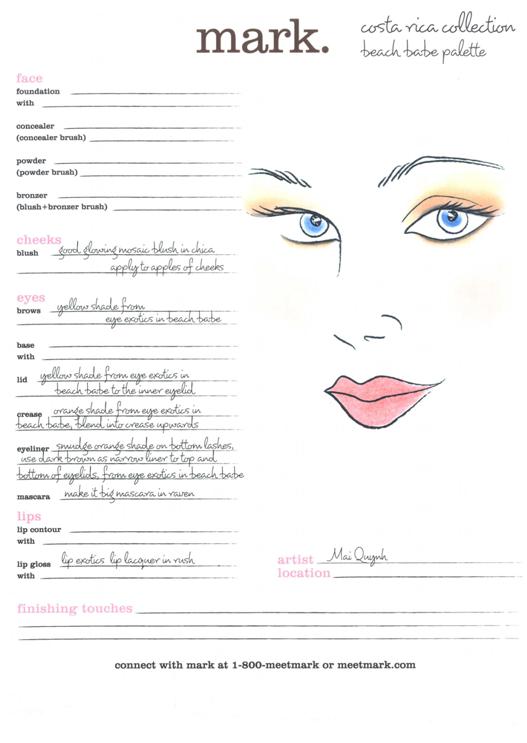 mark.
costa rica collection
beach babe palette
face
foundation
with
concealer
(concealer brush)
powder
(powder brush)
bronzer
(blush+bronzer brush)
cheeks
blush good glowing mosaic blush in chica
apply to apples of cheeks
eyes
brows yellow shade from
eye exotics in beach babe
base
with
lid yellow shade from eye exotics in
beach babe to the inner eyelid
crease orange shade from eye exotics in
beach babe, blend into crease upwards
eyeliner smudge orange shade on bottom lashes,
use dark brown as narrow liner to top and
bottom of eyelids, from eye exotics in beach babe
mascara make it big mascara in raven
lips
lip contour
with
lip gloss lip exotics lip lacquer in rush
with
artist Mai Quynh
location
finishing touches
connect with mark at 1-800-meetmark or meetmark.com